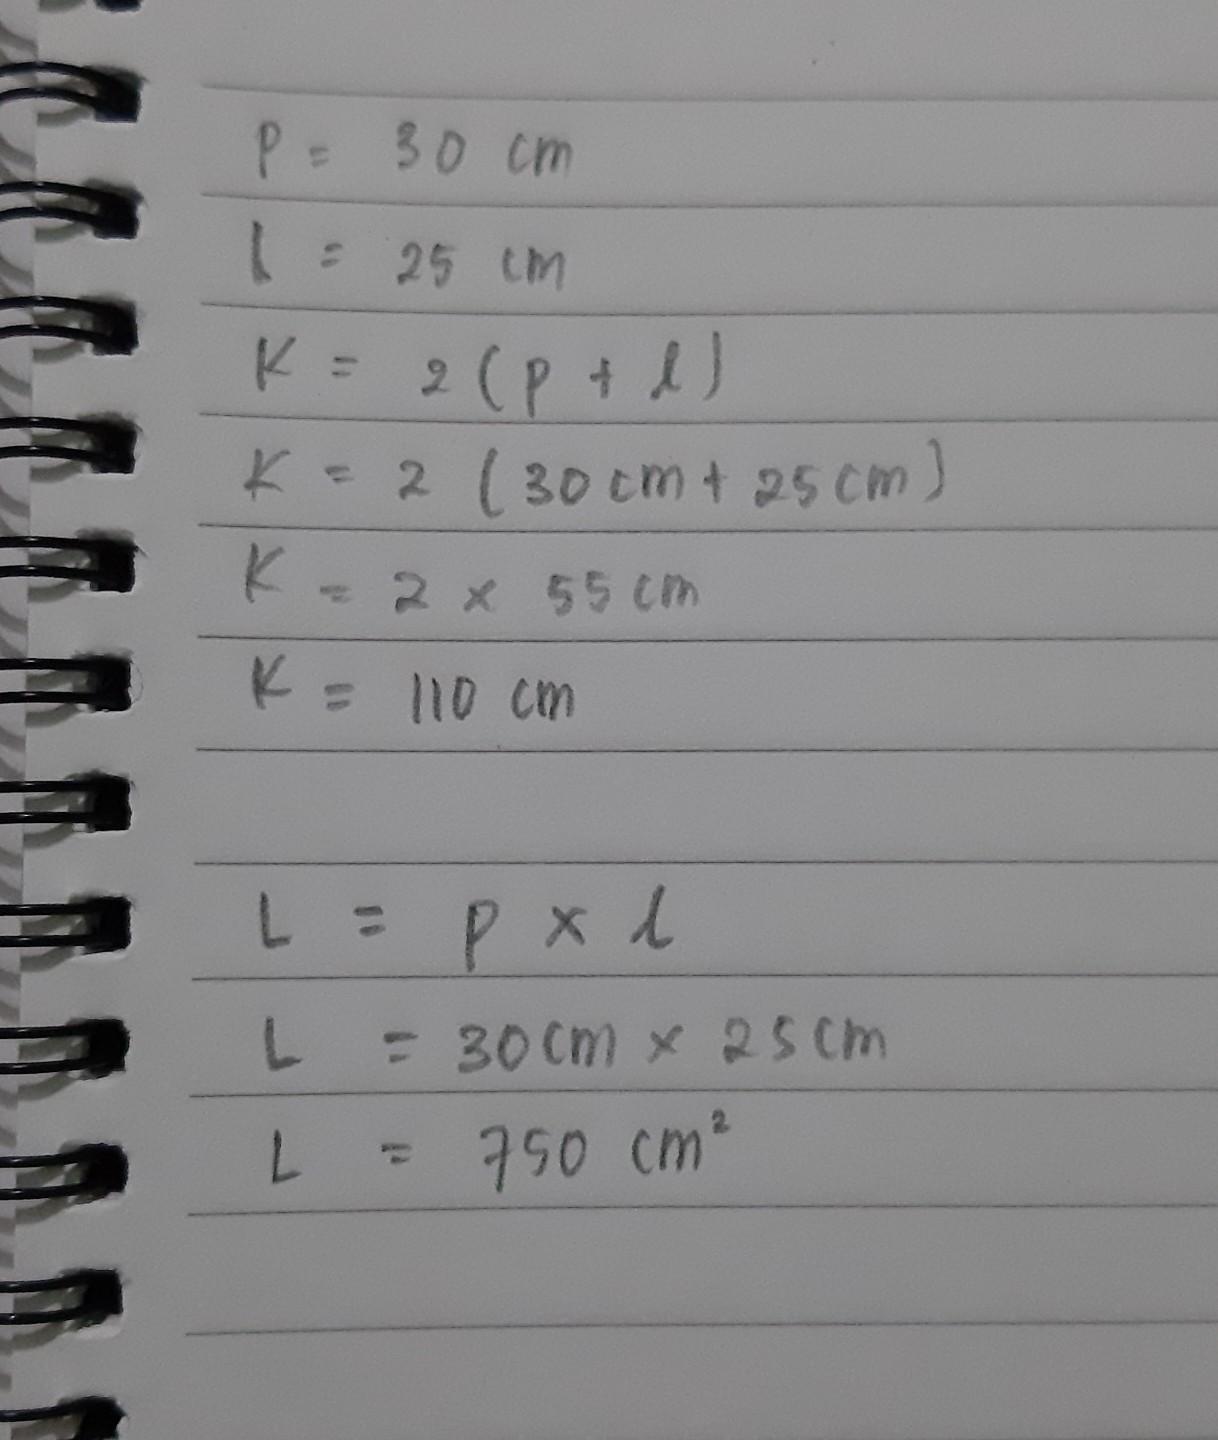 P = 30 cm
l = 25 cm
K = 2 (p + l)
K = 2 (30 cm + 25 cm)
K = 2 x 55 cm
K = 110 cm
L = p x l
L = 30 cm x 25 cm
L = 750 cm²